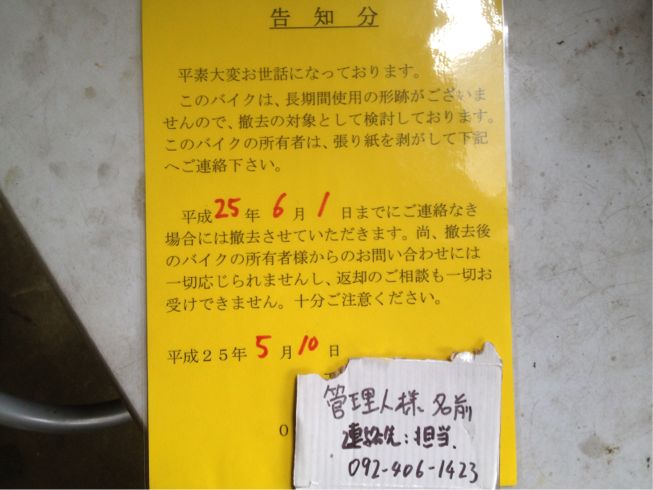 告知分
平素大変お世話になっております。
このバイクは、長期間使用の形跡がございま
せんので、撤去の対象として検討しております。
このバイクの所有者は、張り紙を剥がして下記
へご連絡下さい。
平成25年6月1日までにご連絡なき
場合には撤去させていただきます。尚、撤去後
のバイクの所有者様からのお問い合わせには
一切応じられませんし、返却のご相談も一切お
受けできません。十分ご注意ください。
平成25年5月10日
0
管理人様 名前
連絡先:担当
092-406-1423